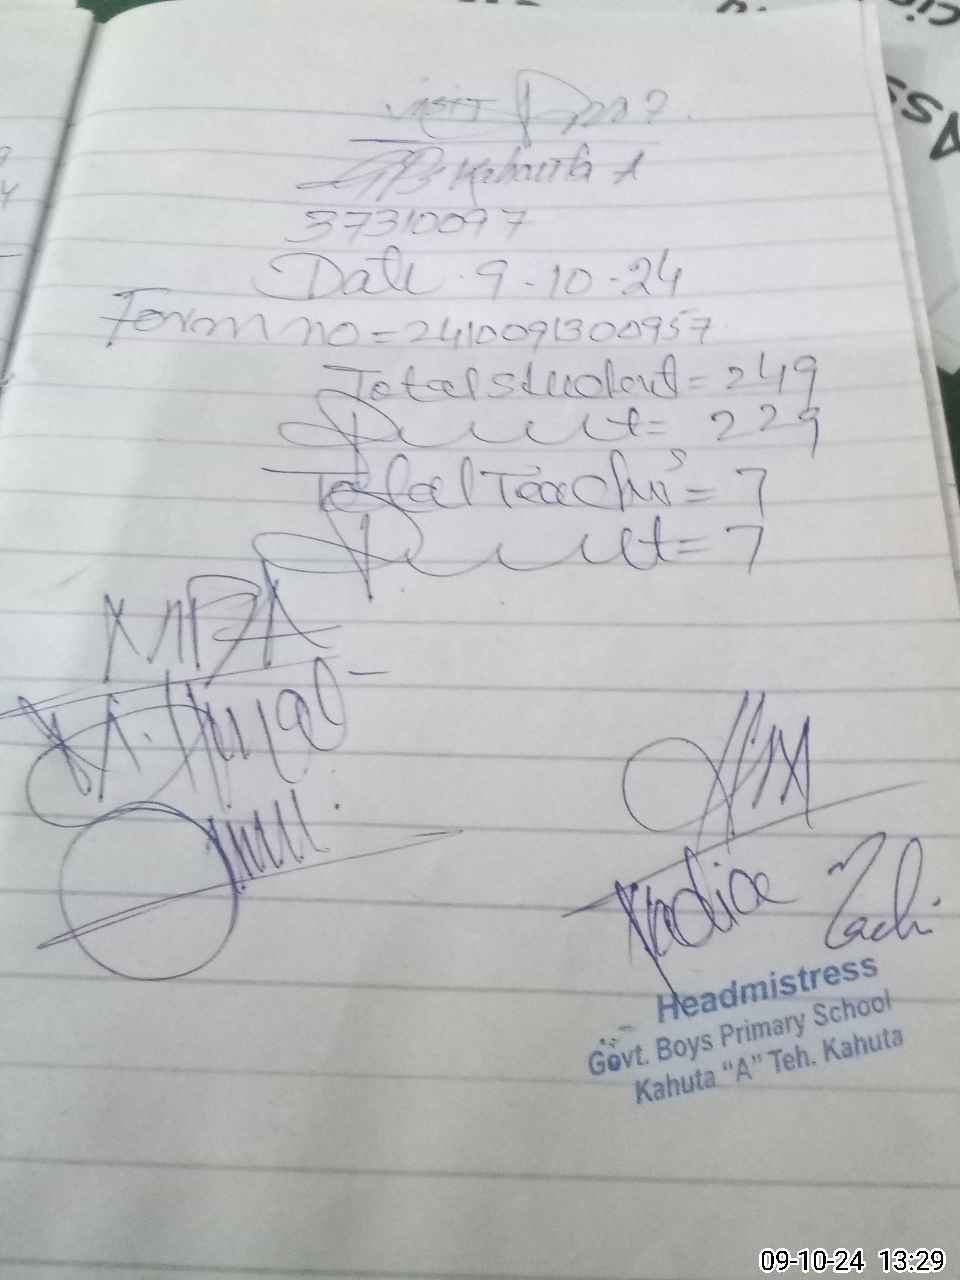 Visit
GPS Kahuta A
37310097
Date 9-10-24
Form no = 2410091300957
Total student = 249
Present = 229
Total Teachers = 7
Present = 7
Nadia
Headmistress
Govt. Boys Primary School
Kahuta "A" Teh. Kahuta
09-10-24 13:29